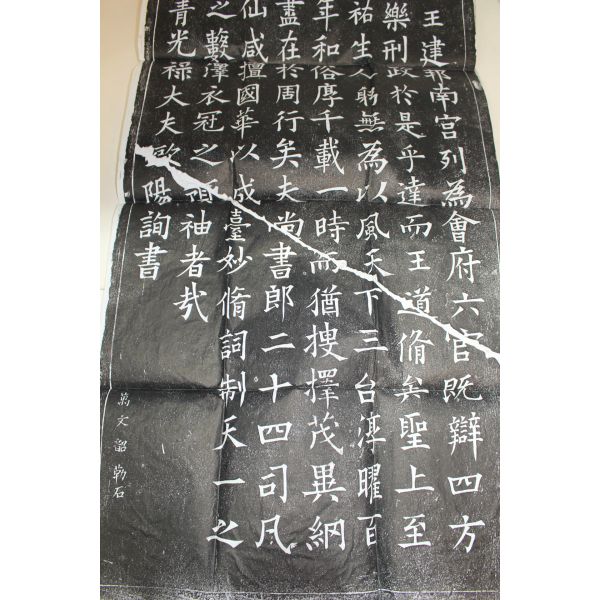 王建邦南宫列為會府六官既辯四方
樂刑政於是乎達而王道脩矣聖上至
祐生人躬無為以風天下三台淳曜百
年和俗厚千載一時而猶搜擇茂異網
盡在於周行矣夫尚書郎二十四司凡
仙咸擅國華以成臺妙脩詞制天一之
之藪澤衣冠之領袖者哉
青光祿大夫歐陽詢書
萬文韶勒石